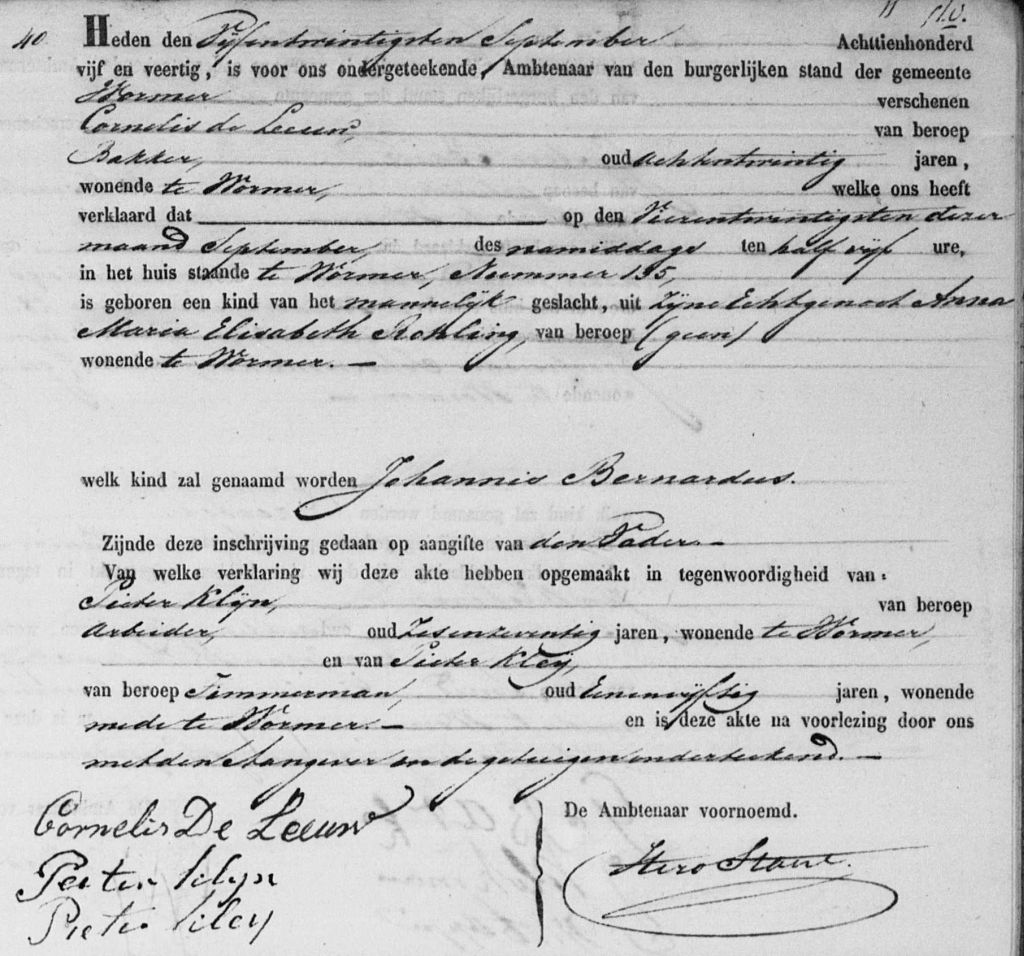 40
Heden den Vijfentwintigsten September Achttienhonderd
vijf en veertig, is voor ons ondergeteekende, Ambtenaar van den burgerlijken stand der gemeente
Wormer verschenen
Cornelis de Leeuw, van beroep
Bakker, oud achtentwintig jaren,
wonende te Wormer, welke ons heeft
verklaard dat op den Vierentwintigsten dezer
maand September, des namiddags ten half vijf ure,
in het huis staande te Wormer, Nummer 135,
is geboren een kind van het mannelijk geslacht, uit Zijne Echtgenoot Anna
Maria Elisabeth Rohling, van beroep (geen)
wonende te Wormer. —
welk kind zal genaamd worden Johannis Bernardus.
Zijnde deze inschrijving gedaan op aangifte van den Vader. —
Van welke verklaring wij deze akte hebben opgemaakt in tegenwoordigheid van:
Pieter Klijn, van beroep
Arbeider, oud Zesenzeventig jaren, wonende te Wormer,
en van Pieter Kleij,
van beroep Timmerman, oud Eenenvijftig jaren, wonende
mede te Wormer. — en is deze akte na voorlezing door ons
met den Aangever en de getuigen onderteekend. —
De Ambtenaar voornoemd.
Cornelis De Leeuw
Hero
Peeter Klyn
Pieter Kley